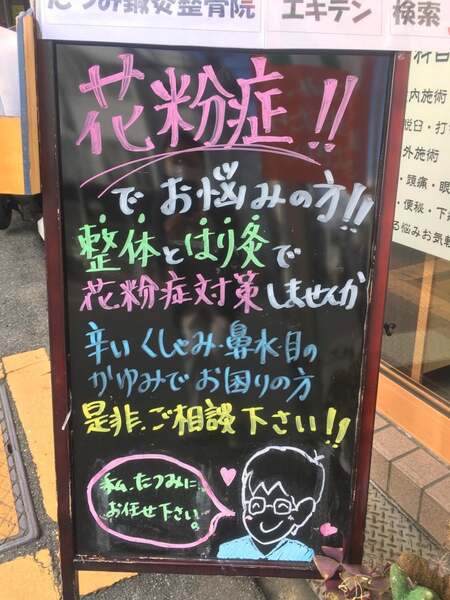 たつみ鍼灸整骨院 エキテン 検索
花粉症!!
でお悩みの方!!
整体とはり灸で
花粉症対策しませんか
辛いくしゃみ・鼻水目の
かゆみでお困りの方
是非、ご相談下さい!!
私、たつみに
お任せ下さい。
科目
内施術
脱臼・打
外施術
・頭痛・眼
・便秘・下
る悩みお気軽